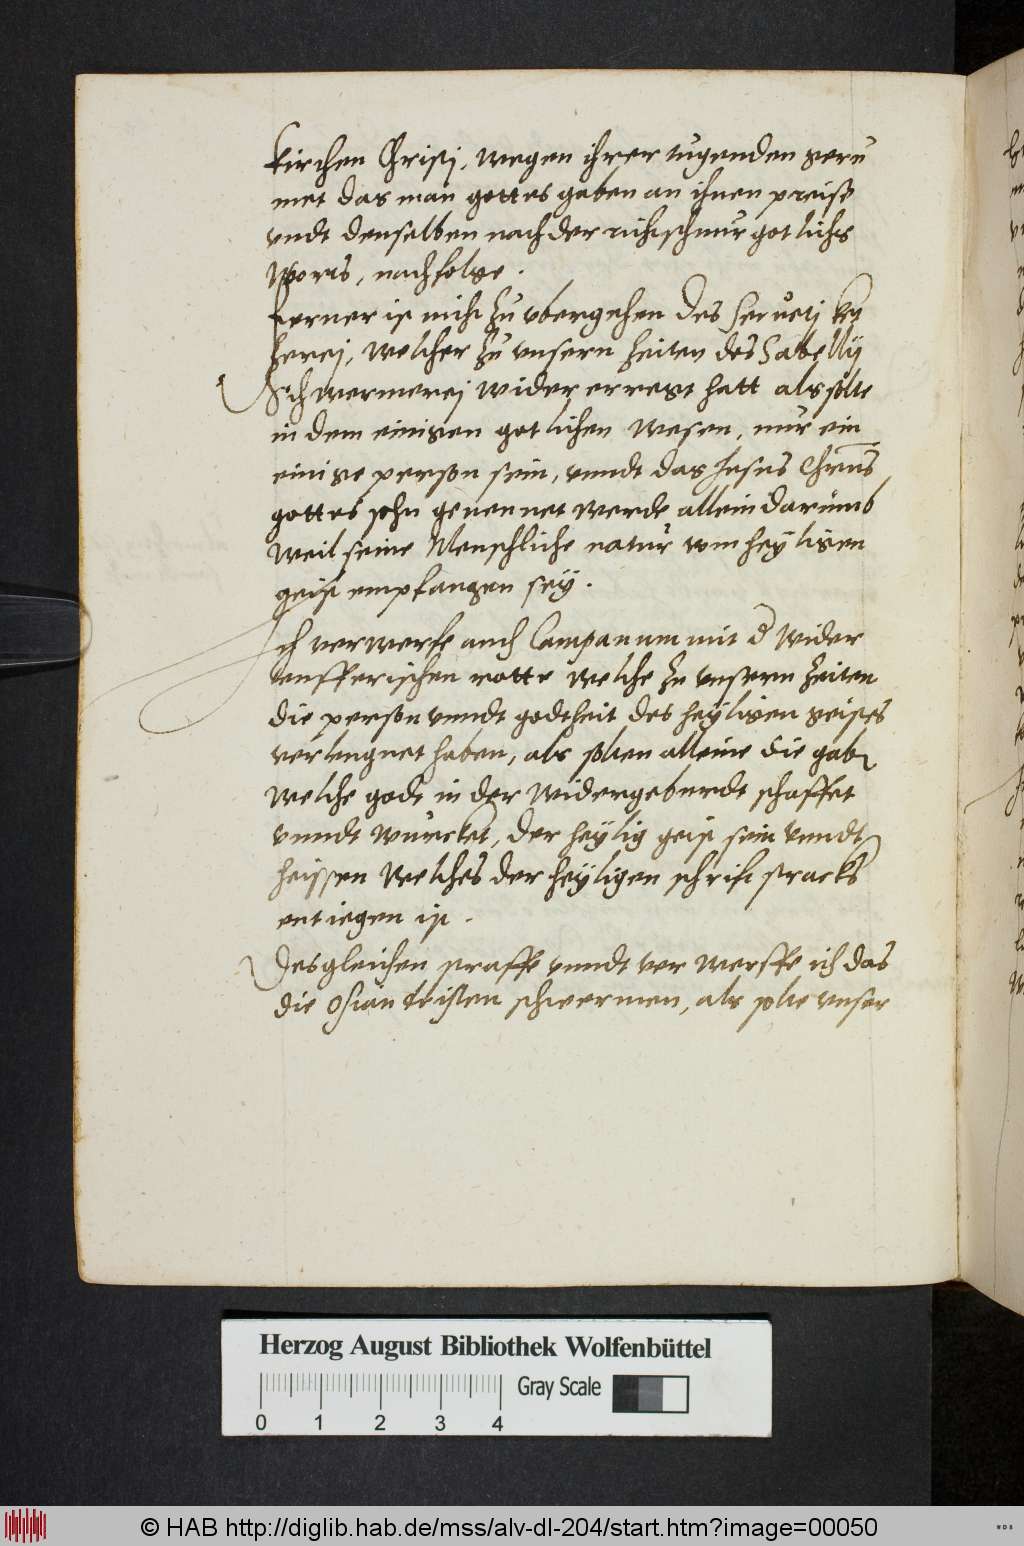 kirchen Christj, wegen ihrer tugenden geru
met das man gottes gaben an ihnen preise
vndt denselben nach der richtschnur gotlichs
Worts, nachfolge.
Ferner ist nicht zu vbergehen des Seruetj ke
zerej, welcher zu vnsern zeiten des Sabellÿ
Schwermerej wider erregt hatt als solte
in dem einigen gotlichen Wesen, nur ein
einige person sein, vnndt das Jesus Chrnus
gottes sohn genennet werde allein darumb
Weil seine Menschliche natur vom heyligen
geist empfangen sey.
Ich verwerfe auch Campanum mit d wider
teufferischen rotte welche zu vnsern zeiten
die person vnndt godtheit des heyligen geistes
verleugnet haben, als solten alleine die gab
welche godt in der widergeburdt schaffet
vnndt wurcket, der heylig geist sein vnndt
heissen welches der heyligen schrift stracks
entiegen ist.
Desgleichen straffe vnndt verwerffe ich das
die Osiandristen schwermen, als solte vnser
Herzog August Bibliothek Wolfenbüttel
Gray Scale
0 1 2 3 4
© HAB http://diglib.hab.de/mss/alv-dl-204/start.htm?image=00050